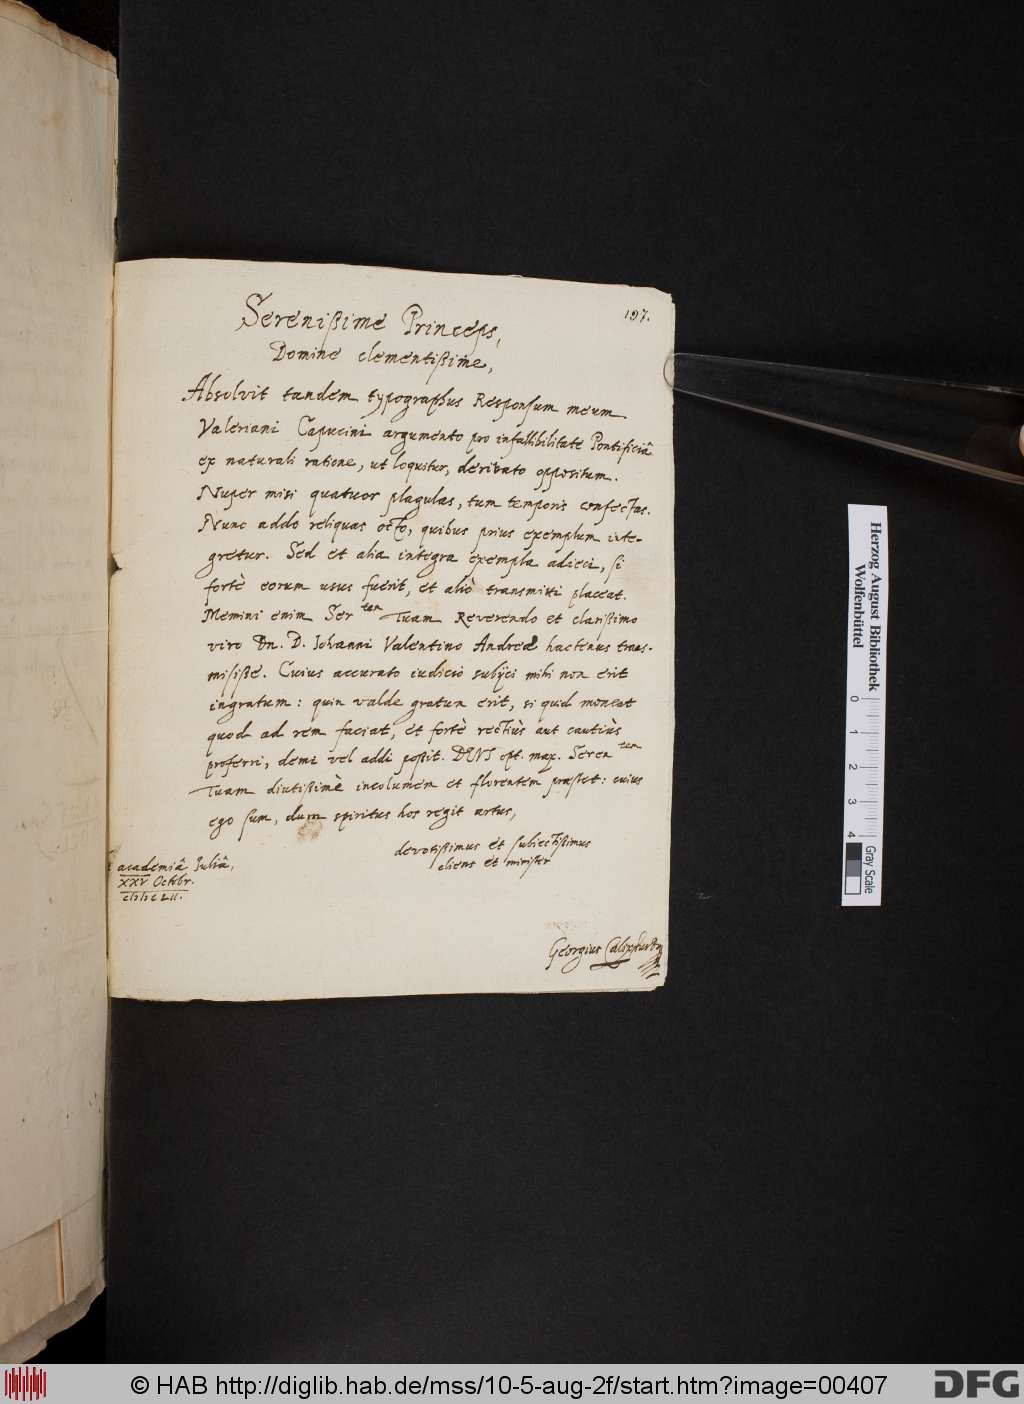 197.
Serenißime Princeps,
Domine clementißime,
Absolvit tandem typographus Responsum meum
Valeriani Capucini argumento pro infallibilitate Pontificiâ
ex naturali ratione, ut loquitur, derivato oppositum.
Nuper misi quatuor plagulas, tum temporis confectas.
Nunc addo reliquas octo, quibus prius exemplum inte-
gretur. Sed et alia integra exempla adieci, si
fortè eorum usus fuerit, et aliò transmitti placeat.
Memini enim Ser tem Tuam Reverendo et clarißimo
viro Dn. D. Iohanni Valentino Andreæ hactenus trans-
misiße. Cuius accurato iudicio subijci mihi non erit
ingratum: quin valde gratum erit, si quid moneat
quod ad rem faciat, et fortè rectiùs aut cautiùs
proferri, demi vel addi poßit. DEUS opt. max. Seren tem
Tuam diutißimè incolumem et florentem præstet: cuius
ego sum, dum spiritus hos regit artus,
devotißimus et subiectißimus
cliens et minister
academiâ Iuliâ,
XXV Octobr.
cIↄ Iↄ c LII.
Georgius Calixtus
Herzog August Bibliothek
Wolfenbüttel
0 1 2 3 4
Gray Scale
© HAB http://diglib.hab.de/mss/10-5-aug-2f/start.htm?image=00407
DFG